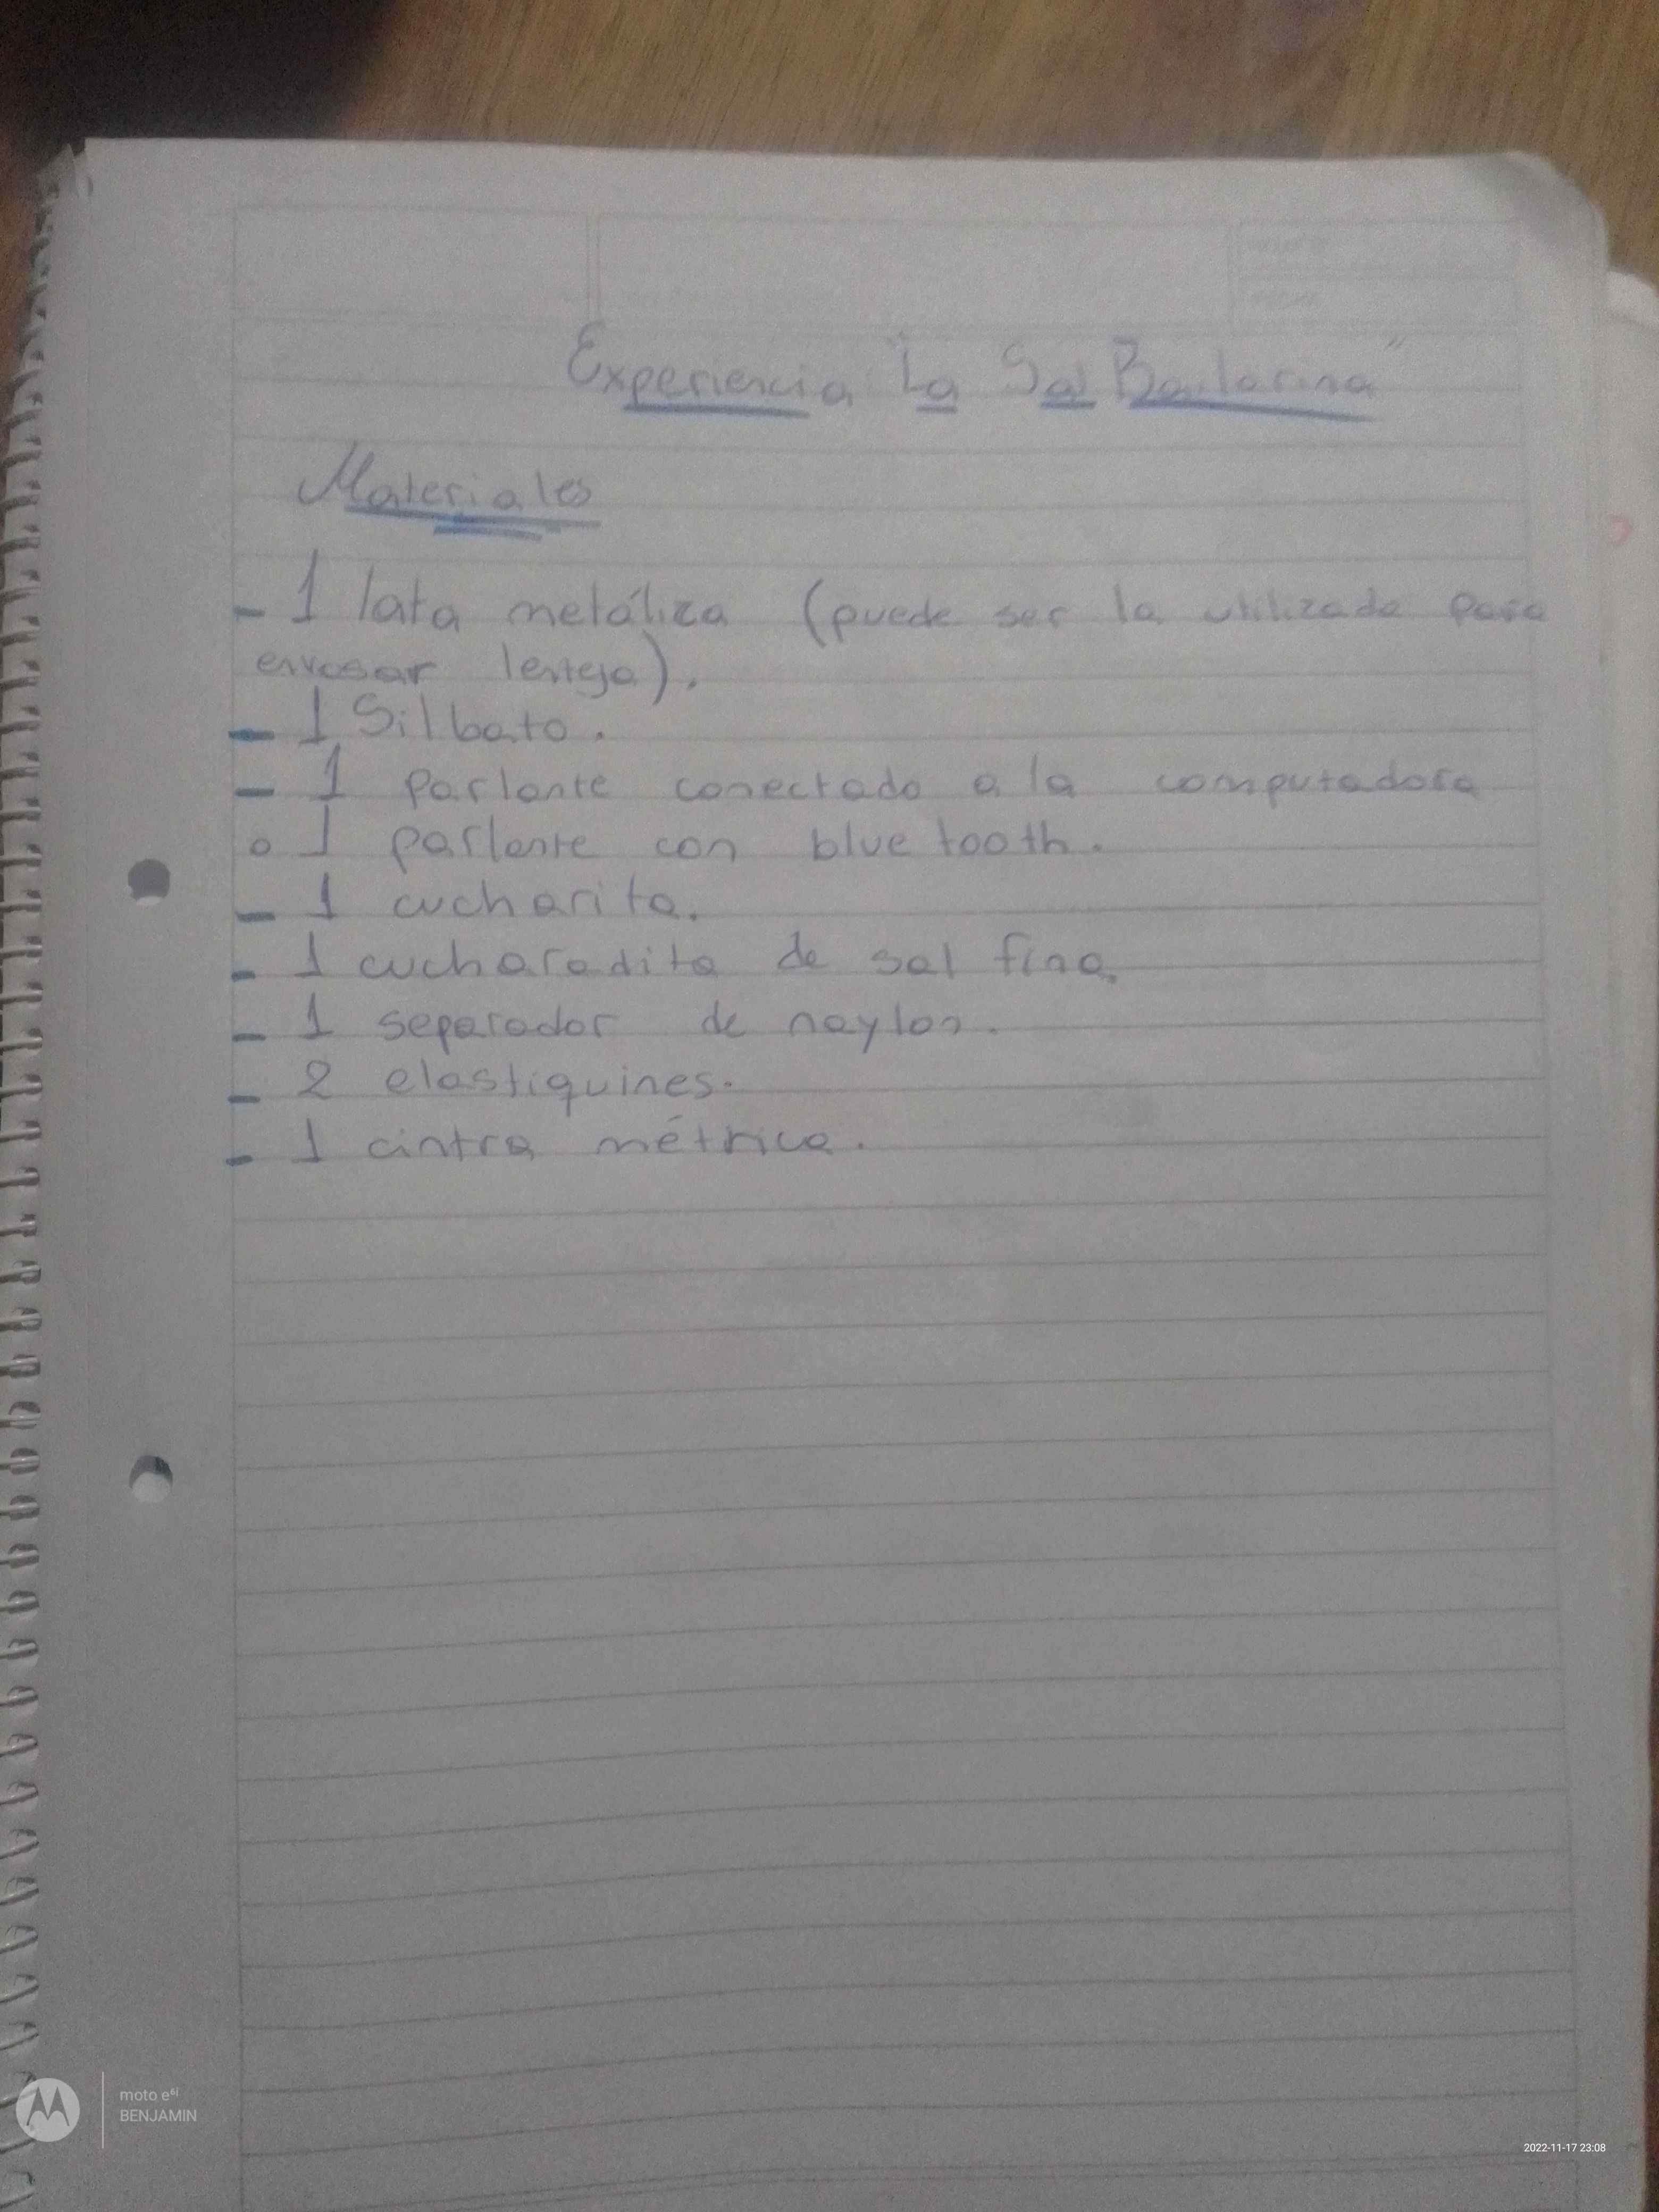 Experiencia "La Sal Bailarina"
Materiales
- 1 lata metáliza (puede ser la utilizada para
envasar lenteja).
- 1 Silbato.
- 1 parlante conectado a la computadora
o 1 parlante con blue tooth.
- 1 cucharita.
- 1 cucharadita de sal fina.
- 1 separador de naylon.
- 2 elastiquines.
- 1 cintra métrica.
moto e⁶ⁱ
BENJAMIN
2022-11-17 23:08